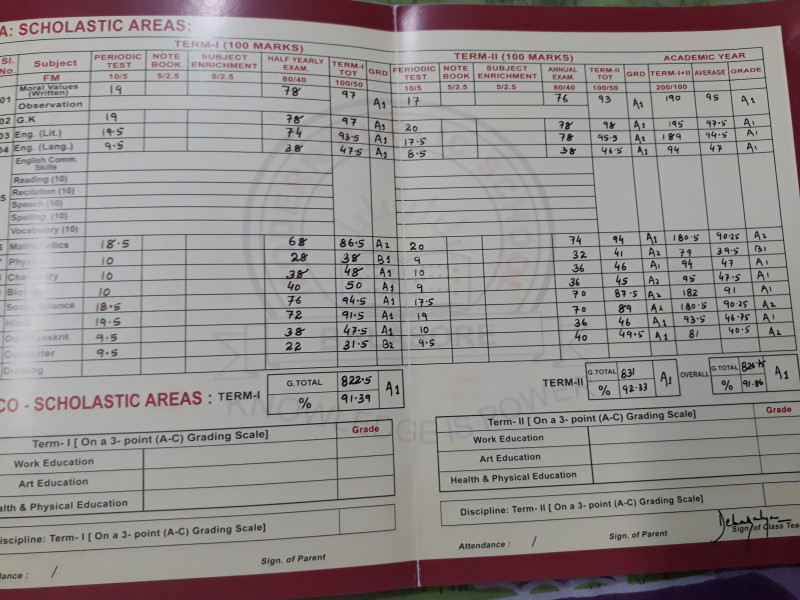 A: SCHOLASTIC AREAS:
TERM-I (100 MARKS) TERM-II (100 MARKS) ACADEMIC YEAR
Sl. No. Subject PERIODIC TEST NOTE BOOK SUBJECT ENRICHMENT HALF YEARLY EXAM. TERM-I TOT GRD PERIODIC TEST NOTE BOOK SUBJECT ENRICHMENT ANNUAL EXAM. TERM-II TOT GRD TERM-I+II AVERAGE GRADE
FM 10/5 5/2.5 5/2.5 80/40 100/50 10/5 5/2.5 5/2.5 80/40 100/50 200/100
01 Moral Values (Written) 19 78 97 A1 17 76 93 A1 190 95 A1
Observation
02 G.K 19 78 97 A1 20 78 98 A1 195 97.5 A1
03 Eng. (Lit.) 19.5 74 93.5 A1 17.5 78 95.5 A1 189 94.5 A1
04 Eng. (Lang.) 9.5 38 47.5 A1 8.5 38 46.5 A1 94 47 A1
English Comm. Skills
5 Reading (10)
Recitation (10)
Speech (10)
Spelling (10)
Vocabulary (10)
Mathematics 18.5 68 86.5 A2 20 74 94 A1 180.5 90.25 A2
10 28 38 B1 9 32 41 A2 79 39.5 B1
Chemistry 10 38 48 A1 10 36 46 A1 94 47 A1
10 40 50 A1 9 36 45 A2 95 47.5 A1
Science 18.5 76 94.5 A1 17.5 70 87.5 A2 182 91 A1
19.5 72 91.5 A1 19 70 89 A2 180.5 90.25 A2
9.5 38 47.5 A1 10 36 46 A1 93.5 46.75 A1
Computer 9.5 22 31.5 B2 9.5 40 49.5 A1 81 40.5 A2
Drawing
CO - SCHOLASTIC AREAS : TERM-I G.TOTAL 822.5 A1 TERM-II G.TOTAL 831 A1 OVERALL G.TOTAL 826.75 A1
% 91.39 % 92.33 % 91.86
KNOWLEDGE IS POWER
Term- I [ On a 3- point (A-C) Grading Scale] Grade
Work Education
Art Education
Health & Physical Education
Discipline: Term- I [ On a 3- point (A-C) Grading Scale]
Sign. of Parent
dance : /
Term- II [ On a 3- point (A-C) Grading Scale] Grade
Work Education
Art Education
Health & Physical Education
Discipline: Term- II [ On a 3- point (A-C) Grading Scale]
Attendance : / Sign. of Parent Sign. of Class Tea